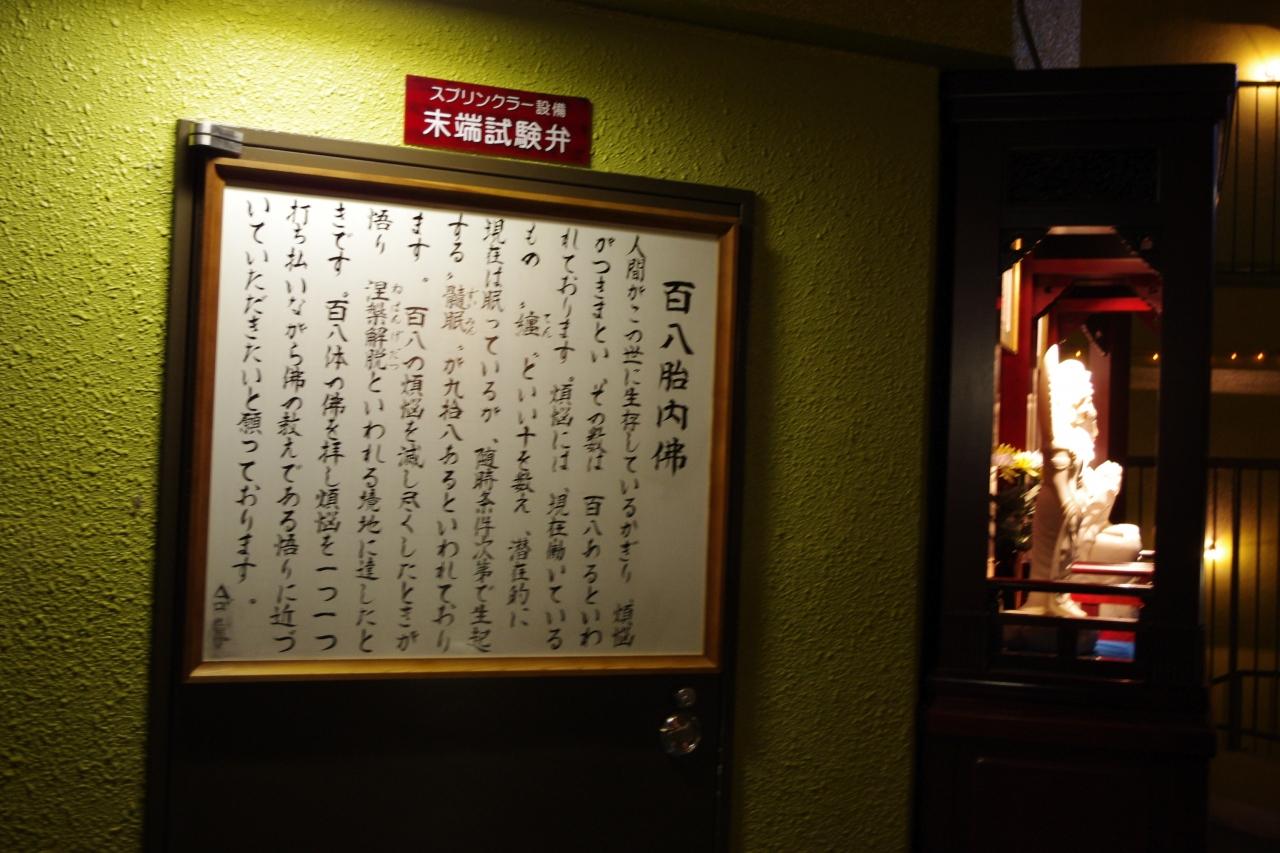 スプリンクラー設備
末端試験弁
百八胎内佛
人間がこの世に生存しているかぎり 煩悩
がつきまとい その数は 百八あるといわ
れております。煩悩には、現在働いている
もの 〝纏〟といい十を数え、潜在的に
てん
現在は眠っているが、随時条件次第で生起
する〝髓眠〟が九拾八あるといわれており
ずいみん
ます。百八の煩悩を滅し尽くしたときが
悟り 涅槃解脱といわれる境地に達したと
ねはんげだつ
きです。百八体の佛を拝し煩悩を一つ一つ
打ち払いながら佛の教えである悟りに近づ
いていただきたいと願っております。